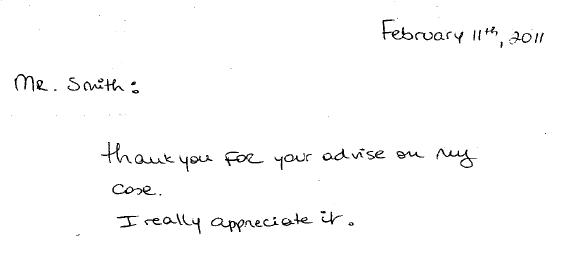 February 11th, 2011
Mr. Smith:
thank you For your advise on my
case.
I really appreciate it.